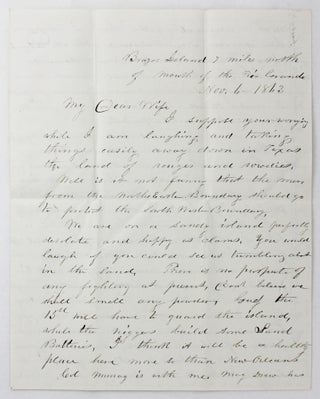 Brazos Island 7 miles north
of mouth of the Rio Grande
Nov. 6 - 1863
My Dear Wife
I suppose your worrying
while I am laughing and taking
things easily away down in Texas
the land of and
Well is it not funny that the man
from the North Eastern Boundary should go
to protect the South West Boundary.
We are on a sandy island perfectly
desolate and happy as clams. You would
laugh if you could see us tumbling about
in the sand. There is no prospect of
any fighting at present, don't believe we
shall smell any powder. Guess the
15th will have to guard the island,
while the niggers build some Sand
Batteries, I think it will be a healthy
place here more so than New Orleans
Col Murray is with me. May Drew has